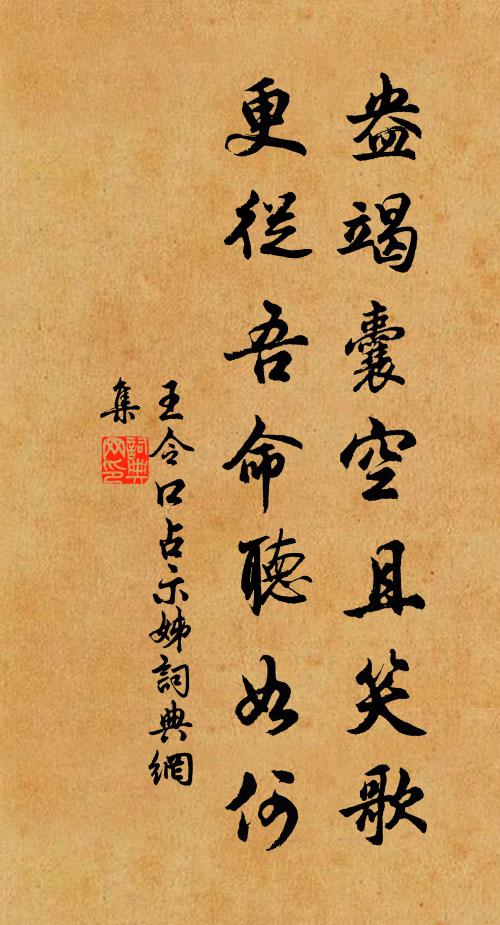 盎竭囊空且笑歌
更從吾命聽如何
王令口占示姊詞典網
集
詞典網印